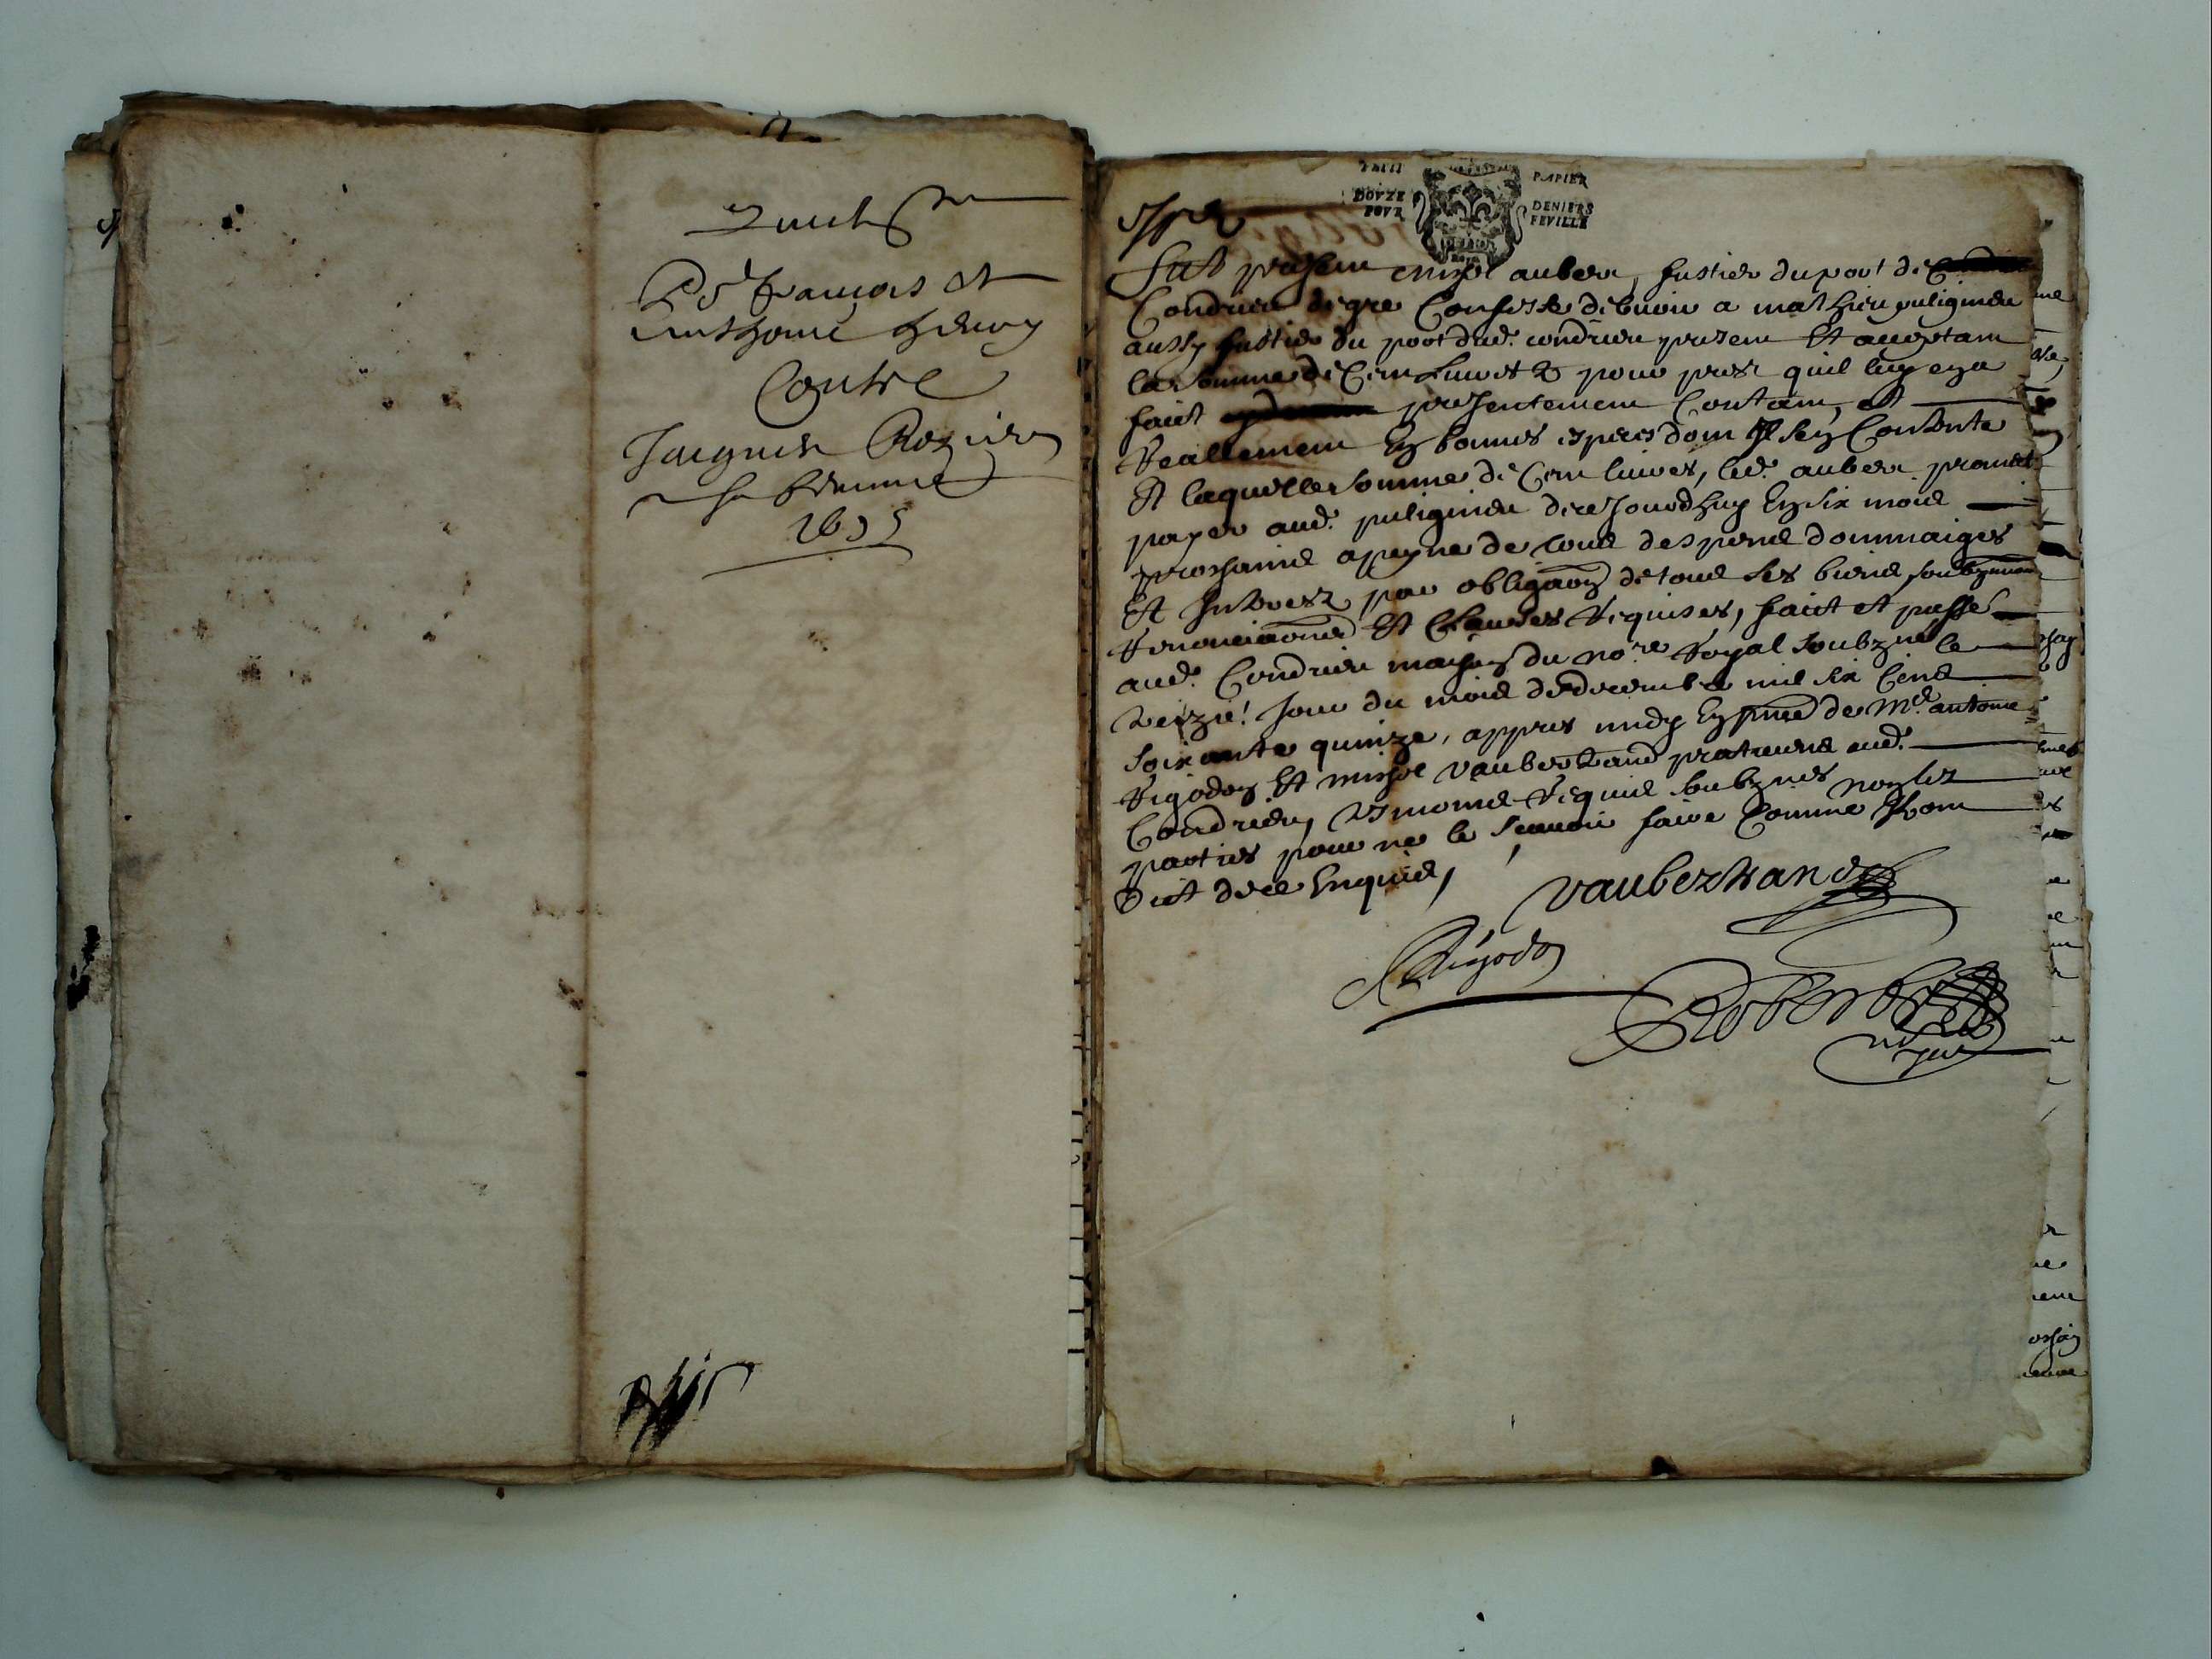 Quict
De françois et
anthoine henry
Contre
Jacques Rozier
sa femme
1675
PAPIER
DOVZE
POVR
DENIERS
FEVILLE
expé
fut present michel aubert, fustier du port de
Condrieu de gre Confesse debvoir a mathieu puligneu
aussy fustier du port dud. condrieu present Et acceptant
la somme de Cent Livres pour prest quil luy en a
faict presentement Contant, et
reallement En bonnes especes dont Il sen Contente
Et laquelle somme de Cent livres, led. aubert promet
payer aud. puligneu dicy Jourdhuy En six mois
prochains a peyne de tous despens dommaiges
Et Interestz par obligaon de tous ses biens soubzmissions
renonciaons Et Clauses requises, faict et passé
aud. Condrieu maison du nore royal soubzné le
treizie. Jour du mois de decembre mil six Cens
soixante quinze, appres midy En pnce de Me. antoine
rigodon Et michel vaubertrand praticiens aud.
Condrieu, tesmoins requis soubznes non les
parties pour ne le scavoir faire Comme Ilz ont
dict de ce Enquis,
vaubertrand
Rigodon
Robert
nore